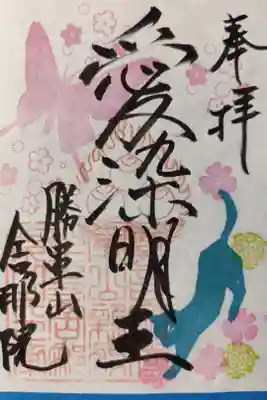 奉拝
愛染明王
勝軍山
金耶院